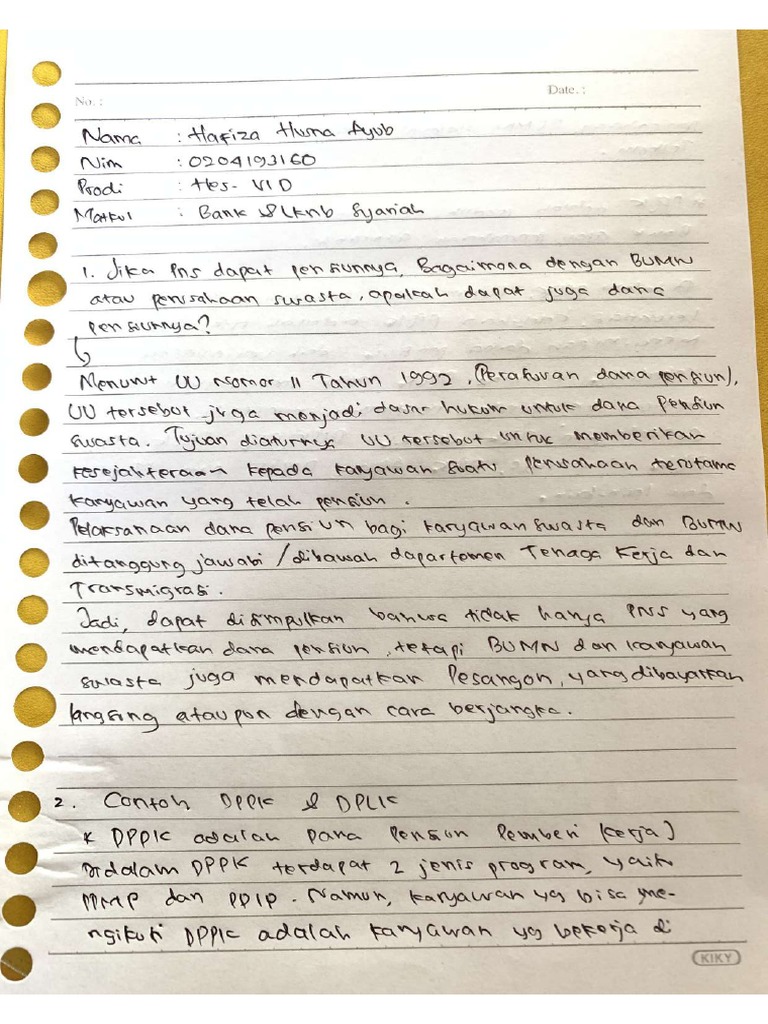 No. :
Date. :
Nama : Hafiza Husna Ayub
Nim : 0204193160
Prodi : Hes - VI D
Matkul : Bank & Lknb Syariah
1. Jika Pns dapat pensiunnya, Bagaimana dengan BUMN
atau perusahaan swasta, apakah dapat juga dana
pensiunnya?
Menurut UU Nomor 11 Tahun 1992, (Peraturan dana pensiun),
UU tersebut juga menjadi dasar hukum untuk dana Pensiun
swasta. Tujuan diaturnya UU tersebut untuk memberikan
kesejahteraan kepada karyawan suatu perusahaan terutama
karyawan yang telah pensiun.
Pelaksanaan dana pensiun bagi karyawan swasta dan BUMN
ditanggung jawabi / dibawah dapartemen Tenaga Kerja dan
Transmigrasi.
Jadi, dapat disimpulkan bahwa tidak hanya PNS yang
mendapatkan dana pensiun, tetapi BUMN dan karyawan
swasta juga mendapatkan Pesangon, yang dibayarkan
langsung ataupun dengan cara berjangka.
2. Contoh DPPK & DPLK
* DPPK adalah Dana Pensiun Pemberi Kerja)
Didalam DPPK terdapat 2 jenis program, yaitu
PPMP dan PPIP. Namun, karyawan yg bisa me-
ngikuti DPPK adalah karyawan yg bekerja di
KIKY